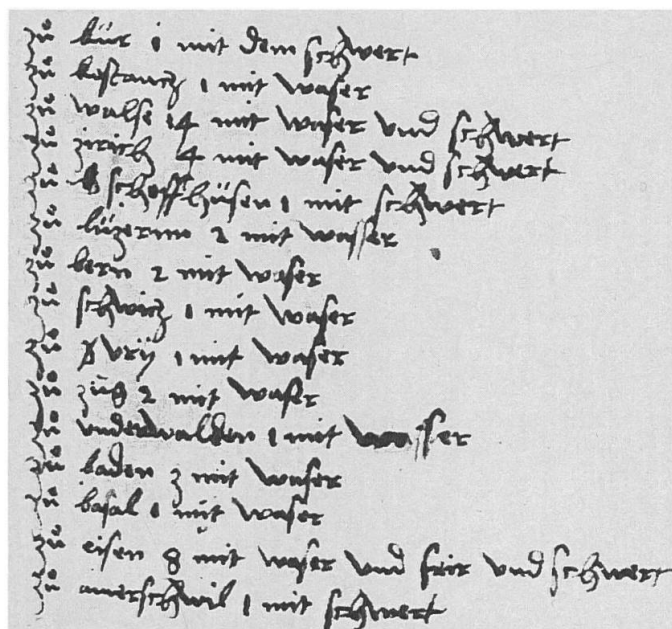 zů kur 1 mit dem schwert
zů kostantz 1 mit waser
zů walse 14 mit waser vnd schwert
zů zirich 4 mit waser vnd schwert
zů schoffhüsen 1 mit schwert
zů lüzernn 2 mit wasser
zů bern 2 mit waser
zů schwicz 1 mit waser
zů vrÿ 1 mit waser
zů züg 2 mit waser
zů vnderwalden 1 mit wasser
zů baden 3 mit waser
zů basal 1 mit waser
zů eisen 8 mit waser vnd frir vnd schwert
zů amerschwil 1 mit schwert